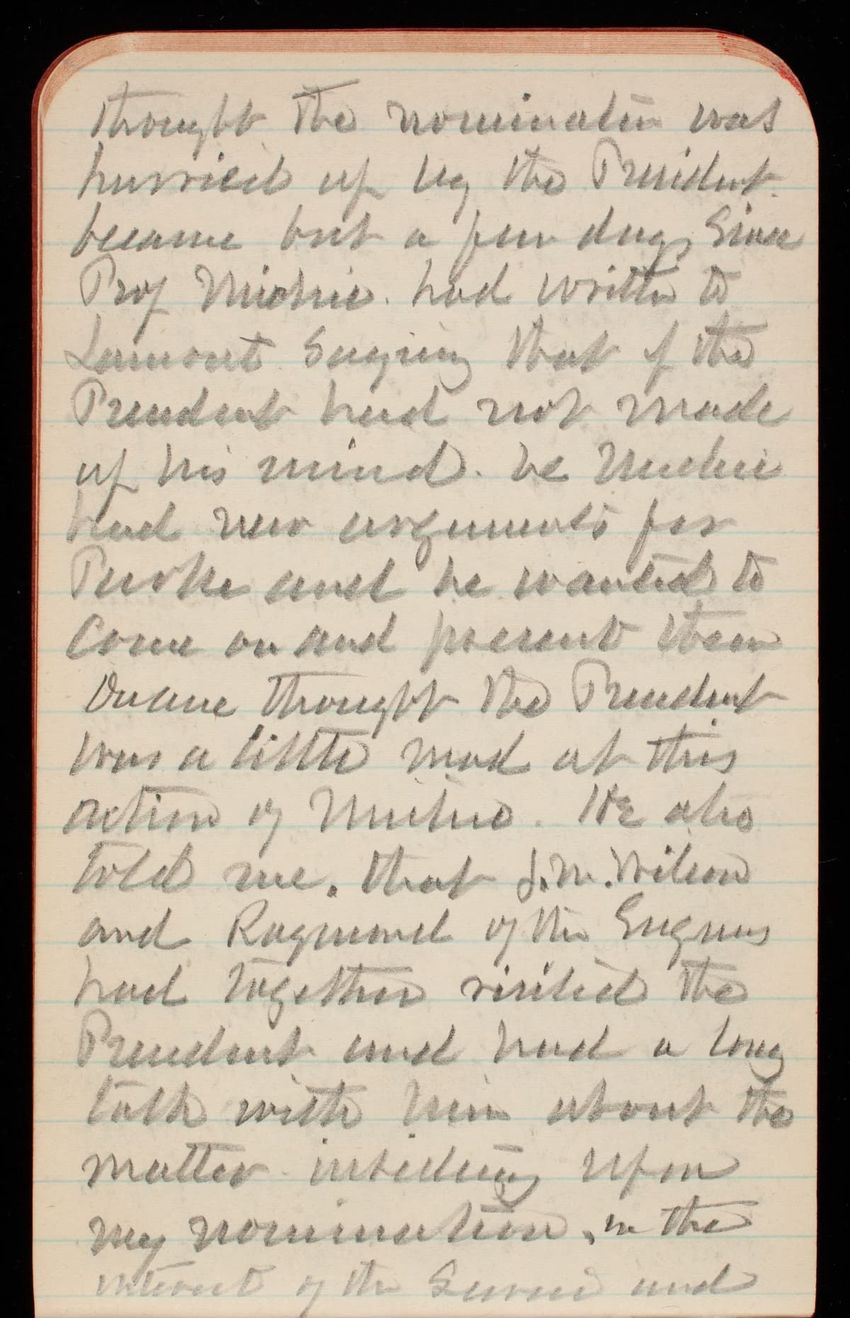 thought the nomination was
hurried up by the President
became but a few days since
Prof Michie. had written to
Lamont saying that if the
President had not made
up his mind. he Michie
had new arguments for
and he wanted to
come on and present them
Duane thought the President
was a little mad at this
action of Michie. He also
told me. that J.M. Wilson
and Raymond of the Engrs
had together visited the
President and had a long
talk with him about the
matter insisting upon
my nomination, in the
interest of the Service and